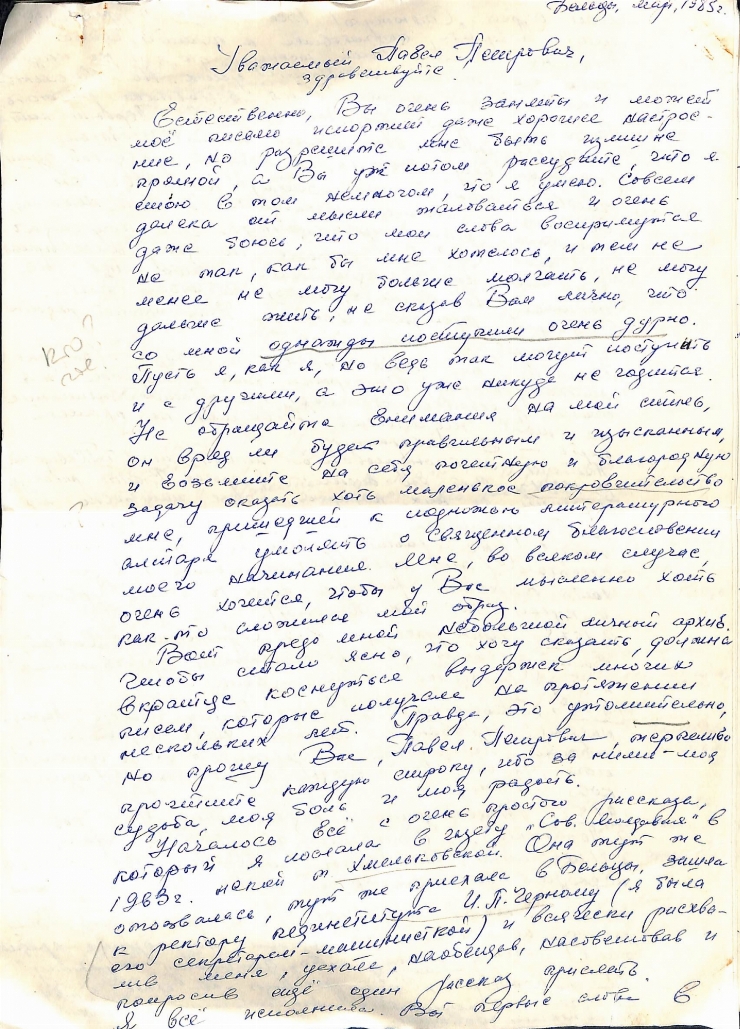 Бельцы, мар, 1985г.
Уважаемый Павел Петрович,
здравствуйте.
Естественно, Вы очень заняты и может
моё письмо испортит даже хорошее настрое-
ние, но разрешите мне быть излишне
прямой, а Вы уж потом рассудите, что я
стою в том немногом, что я умею. Совсем
далека от мысли жаловаться и очень
даже боюсь, что мои слова воспримутся
не так, как бы мне хотелось, и тем не
менее не могу больше молчать, не могу
дальше жить, не сказав Вам лично, что
со мной однажды поступили очень дурно.
Кто?
где.
Пусть я, как я, но ведь так могут поступить
и с другими, а это уже никуда не годится.
Не обращайте внимания на мой стиль,
он вряд ли будет правильным и изысканным,
и возьмите на себя почётную и благородную
задачу оказать хоть маленькое покровительство
мне, пришедшей к подножью литературного
алтаря умолять о священном благословении
моего начинания. Мне, во всяком случае,
очень хочется, чтобы у Вас мысленно хоть
как-то сложился мой образ.
Вот предо мной небольшой личный архив.
Чтобы стало ясно, что хочу сказать, должна
вкратце коснуться выдержек многих
писем, которые получала на протяжении
нескольких лет. Правда, это утомительно,
но прошу Вас, Павел Петрович, терпеливо
прочтите каждую строку, что за ними – моя
судьба, моя боль и моя радость.
Началось всё с очень простого рассказа,
который я послала в газету „Сов. Молдавия" в
1963г. некой т Хмельковской. Она тут же
отозвалась, тут же приехала в Бельцы, зашла
к ректору пединститута И.П. Черному (я была
его секретарём-машинисткой) и всячески расхва-
лив меня, уехала, наобещав, насоветовав и
попросив ещё один рассказ прислать.
Я всё исполнила. Вот первые слова в